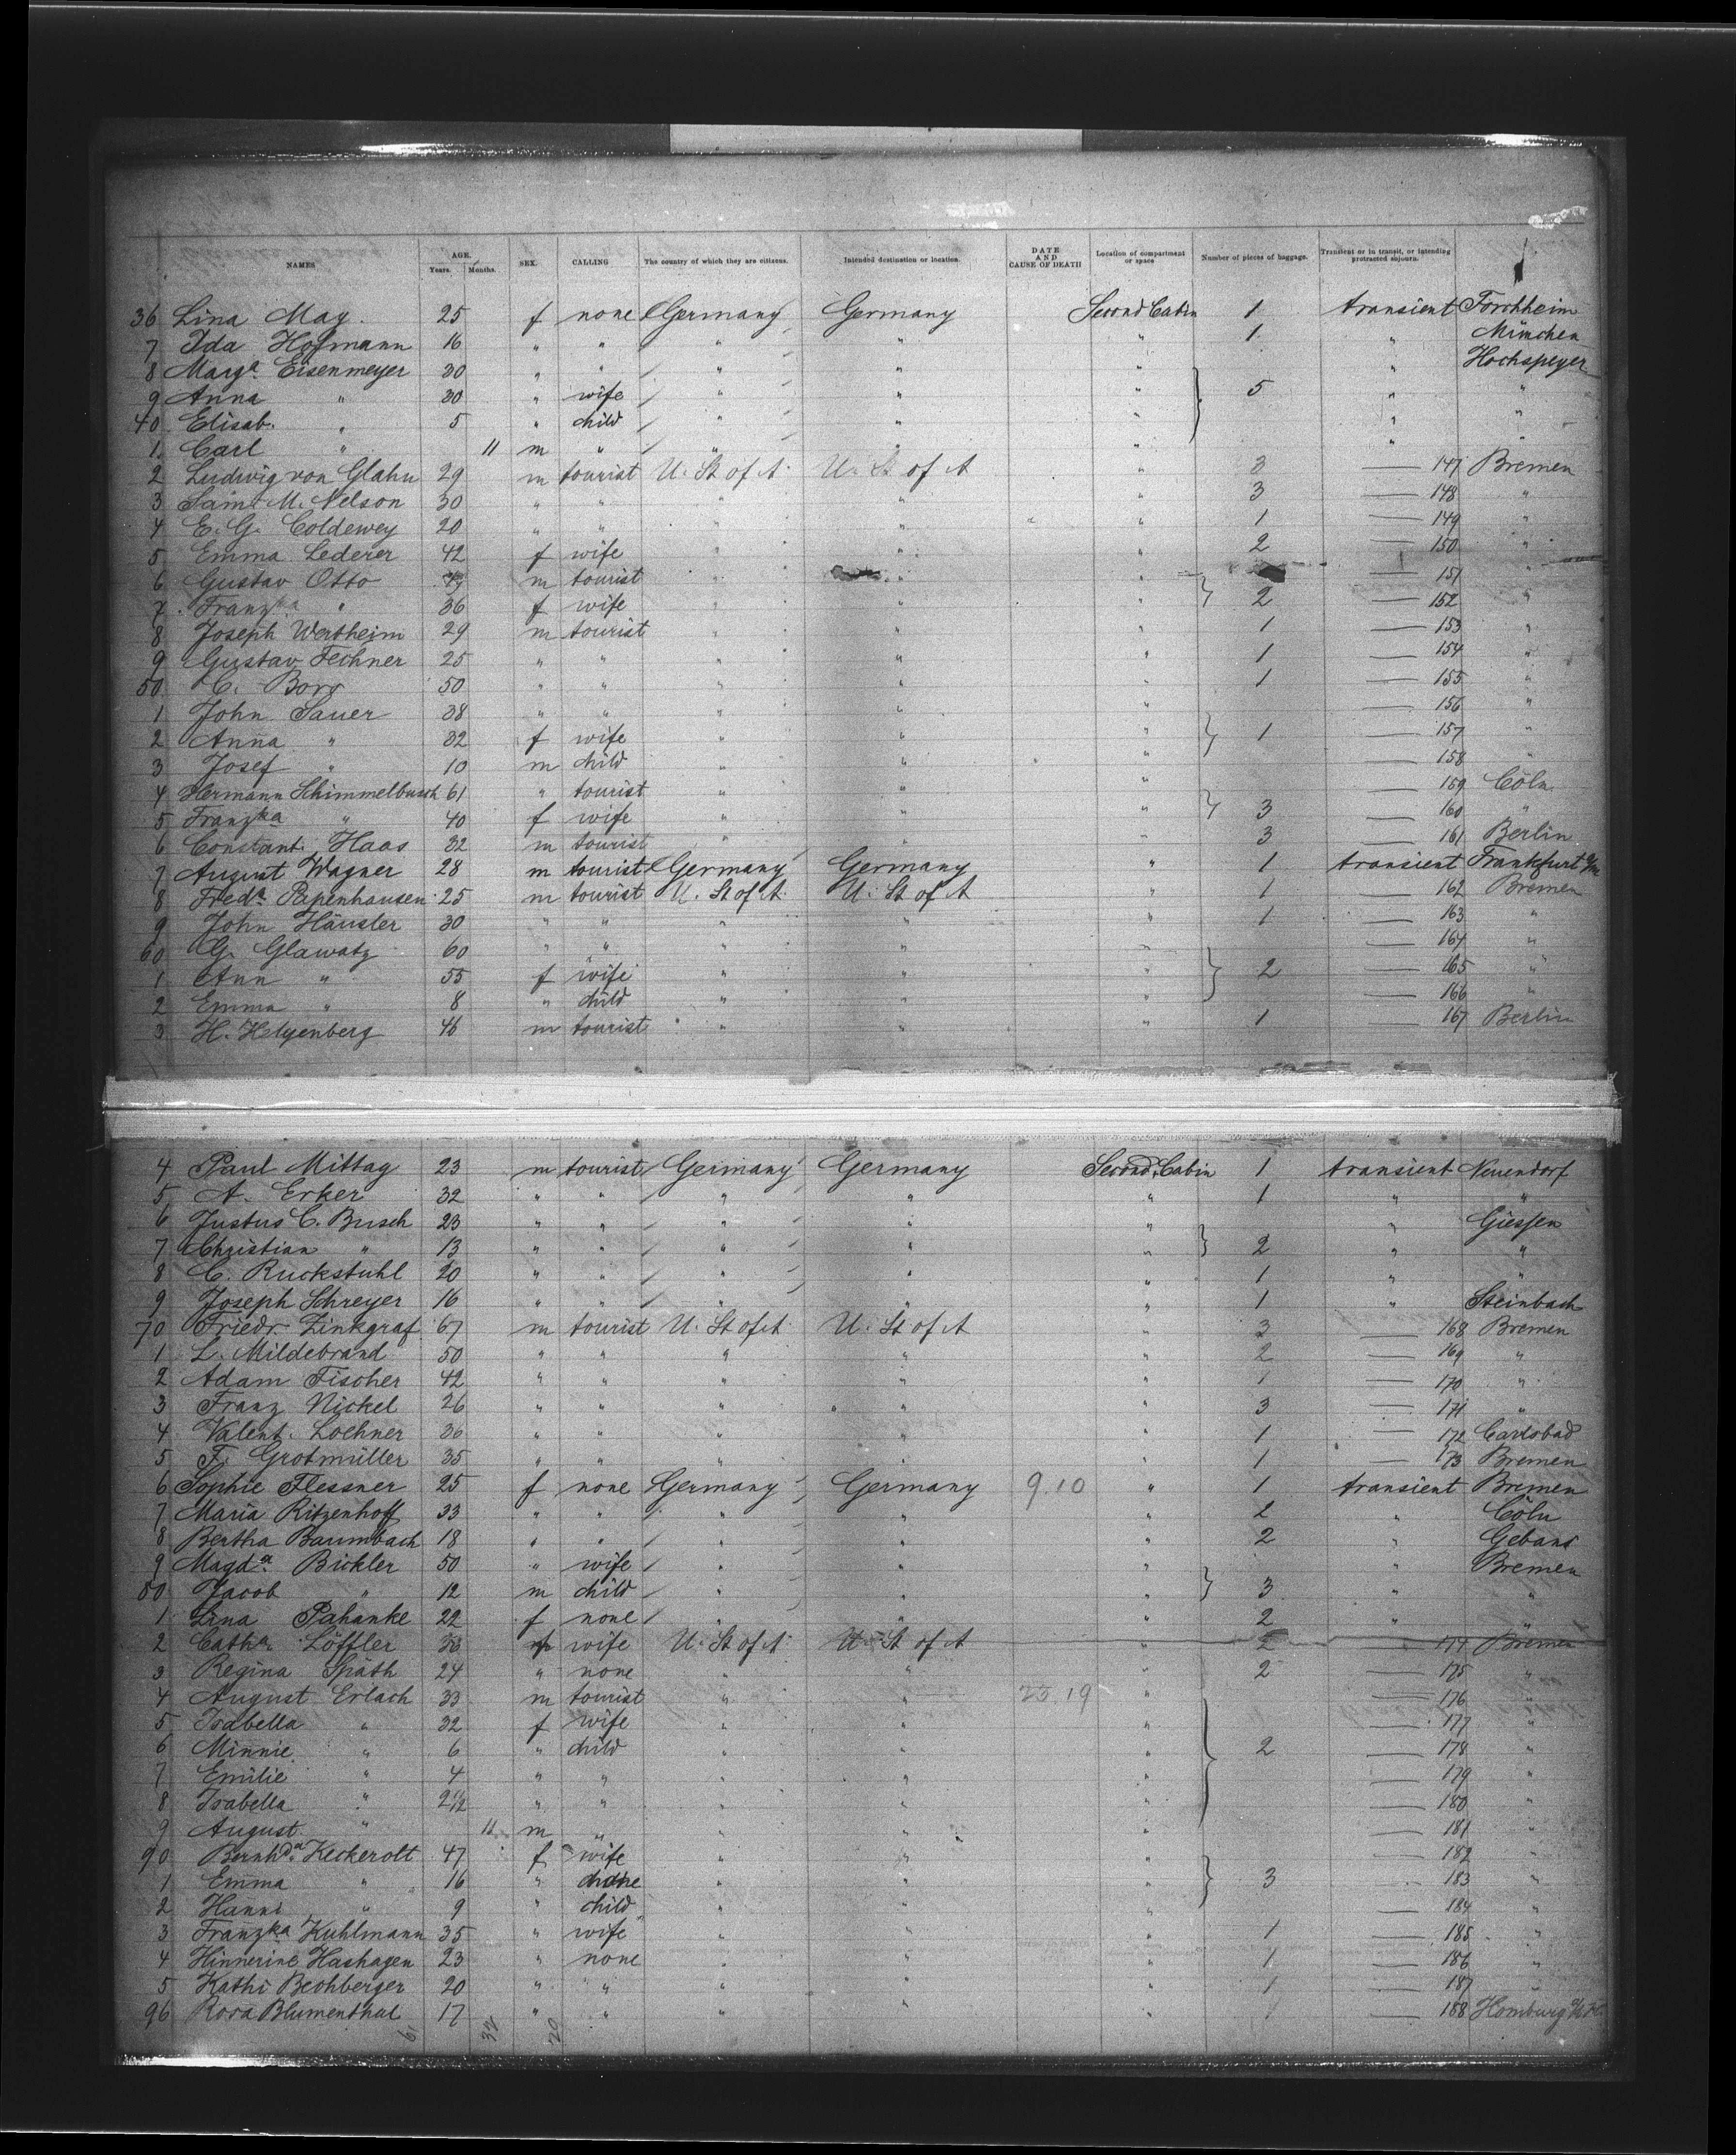 NAMES AGE. Years. Months. SEX. CALLING The country of which they are citizens. Intended destination or location. DATE AND CAUSE OF DEATH Location of compartment or space Number of pieces of baggage. Transient or in transit, or intending protracted sojourn.
36 Lina May. 25 f none Germany Germany Second Cabin 1 transient Forchheim
7 Ida Hofmann 16 " " " " " 1 " München
8 Marga. Eisenmeyer 30 " " " " " " Hochspeyer
9 Anna " 30 " wife " " " 5 " "
40 Elisab. " 5 " child " " " " "
1 Carl " 11 m " " " " " "
2 Ludwig von Glahn 29 m tourist U. St of A. U. St of A " 3 — 147 Bremen
3 Saml M. Nelson 30 " " " " " 3 — 148 "
4 E. G. Coldewey 20 " " " " " 1 — 149 "
5 Emma Lederer 42 f wife " " " 2 — 150 "
6 Gustav Otto m tourist " " " — 151 "
7 Franzka " 36 f wife " " " 2 — 152 "
8 Joseph Wertheim 29 m tourist " " " 1 — 153 "
9 Gustav Fechner 25 " " " " " 1 — 154 "
50 C. Borg 50 " " " " " 1 — 155 "
1 John Sauer 38 " " " " " — 156 "
2 Anna " 32 f wife " " " 1 — 157 "
3 Josef " 10 m child " " " — 158 "
4 Hermann Schimmelbusch 61 " tourist " " " — 159 Cöln
5 Franzka " 40 f wife " " " 3 — 160 "
6 Constant. Haas 32 m tourist " " " 3 — 161 Berlin
7 August Wagner 28 m tourist Germany Germany " 1 transient Frankfurt a/m
8 Freda. Papenhausen 25 m tourist U. St of A. U. St of A " 1 — 162 Bremen
9 John Häusler 30 " " " " " 1 — 163 "
60 G. Glawatz 60 " " " " " — 164 "
1 Ann " 55 f wife " " " 2 — 165 "
2 Emma " 8 " child " " " — 166 "
3 H. Helgenberg 46 m tourist " " " 1 — 167 Berlin
4 Paul Mittag 23 m tourist Germany Germany Second Cabin 1 transient Neuendorf
5 A. Erker 32 " " " " " 1 " "
6 Justus C. Busch 23 " " " " " " Giessen
7 Christian " 13 " " " " " 2 " "
8 C. Ruckstuhl 20 " " " " " 1 " "
9 Joseph Schreyer 16 " " " " " 1 " Steinbach
70 Friedr. Zinkgraf 67 m tourist U. St of A. U. St of A " 3 — 168 Bremen
1 L. Mildebrand 50 " " " " " 2 — 169 "
2 Adam Fischer 42 " " " " " 1 — 170 "
3 Franz Nickel 26 " " " " " 3 — 171 "
4 Valent. Lochner 36 " " " " " 1 — 172 Carlsbad
5 F. Grotmüller 35 " " " " " 1 — 173 Bremen
6 Sophie Flessner 25 f none Germany Germany 9.10 " 1 transient Bremen
7 Maria Ritzenhoff 33 " " " " " 2 " Cöln
8 Bertha Baumbach 18 " " " " " 2 "
9 Magda. Bickler 50 " wife " " " " Bremen
80 Jacob " 12 m child " " " 3 " "
1 Lina Pahanke 22 f none " " " 2 " "
2 Catha. Löffler f wife U. St of A. U. St of A " 2 — 174 Bremen
3 Regina Späth 24 " none " " " 2 — 175 "
4 August Erlach 33 m tourist " " 23.19 " — 176 "
5 Isabella " 32 f wife " " " — 177 "
6 Minnie " 6 " child " " " 2 — 178 "
7 Emilie " 4 " " " " " — 179 "
8 Isabella " 2 1/2 " " " " " — 180 "
9 August " 11 m " " " " — 181 "
90 Bernhda. Keckerolt 47 f wife " " " — 182 "
1 Emma " 16 " " " " 3 — 183 "
2 Hanni " 9 " child " " " — 184 "
3 Franzka Kuhlmann 35 " wife " " " 1 — 185 "
4 Hinnerine Hashagen 23 " none " " " 1 — 186 "
5 Kathi Bechberger 20 " " " " " 1 — 187 "
96 Rosa Blumenthal 17 " " " " " 1 — 188 Homburg
61 32 20